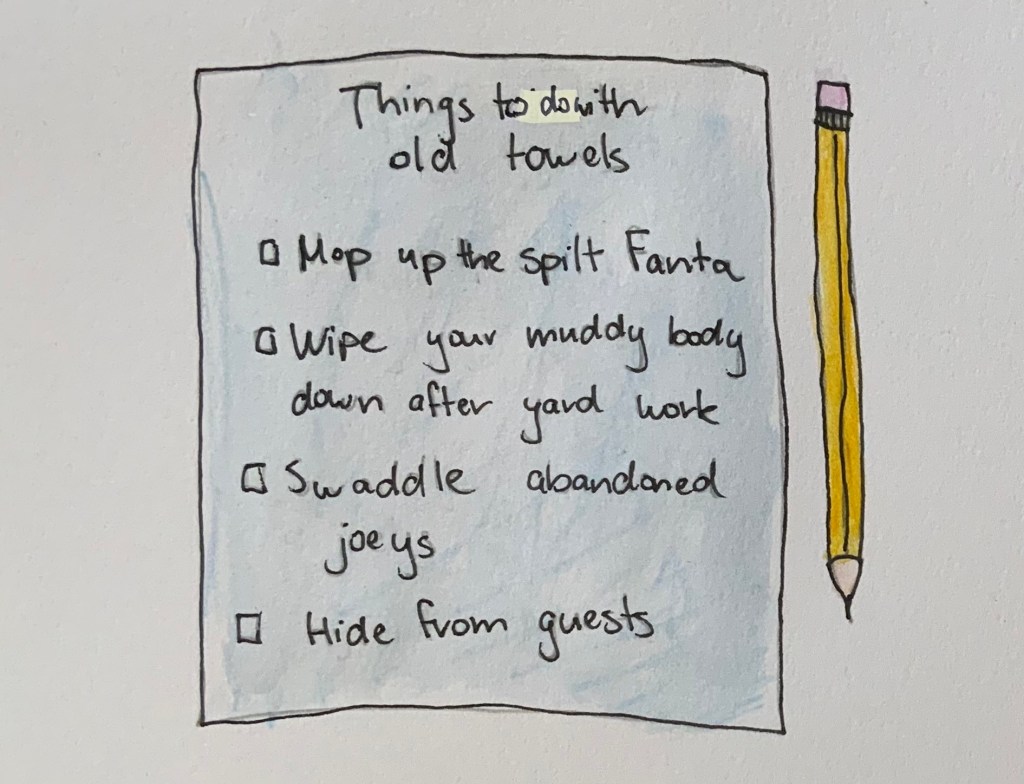 Things to do with
old towels
Mop up the spilt Fanta
Wipe your muddy body
down after yard work
Swaddle abandoned
joeys
Hide from guests